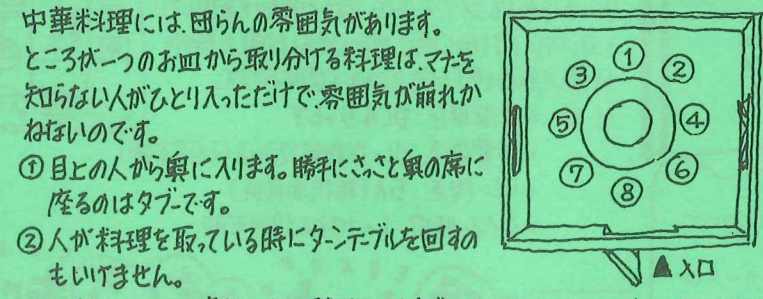 中華料理には、団らんの雰囲気があります。
ところが一つのお皿から取り分ける料理は、マナーを
知らない人がひとり入っただけで、雰囲気が崩れか
ねないのです。
①目上の人から奥に入ります。勝手にさっさと奥の席に
座るのはタブーです。
②人が料理を取っている時にターンテーブルを回すの
もいけません。
①
③ ②
⑤ ④
⑦ ⑥
⑧
▲入口